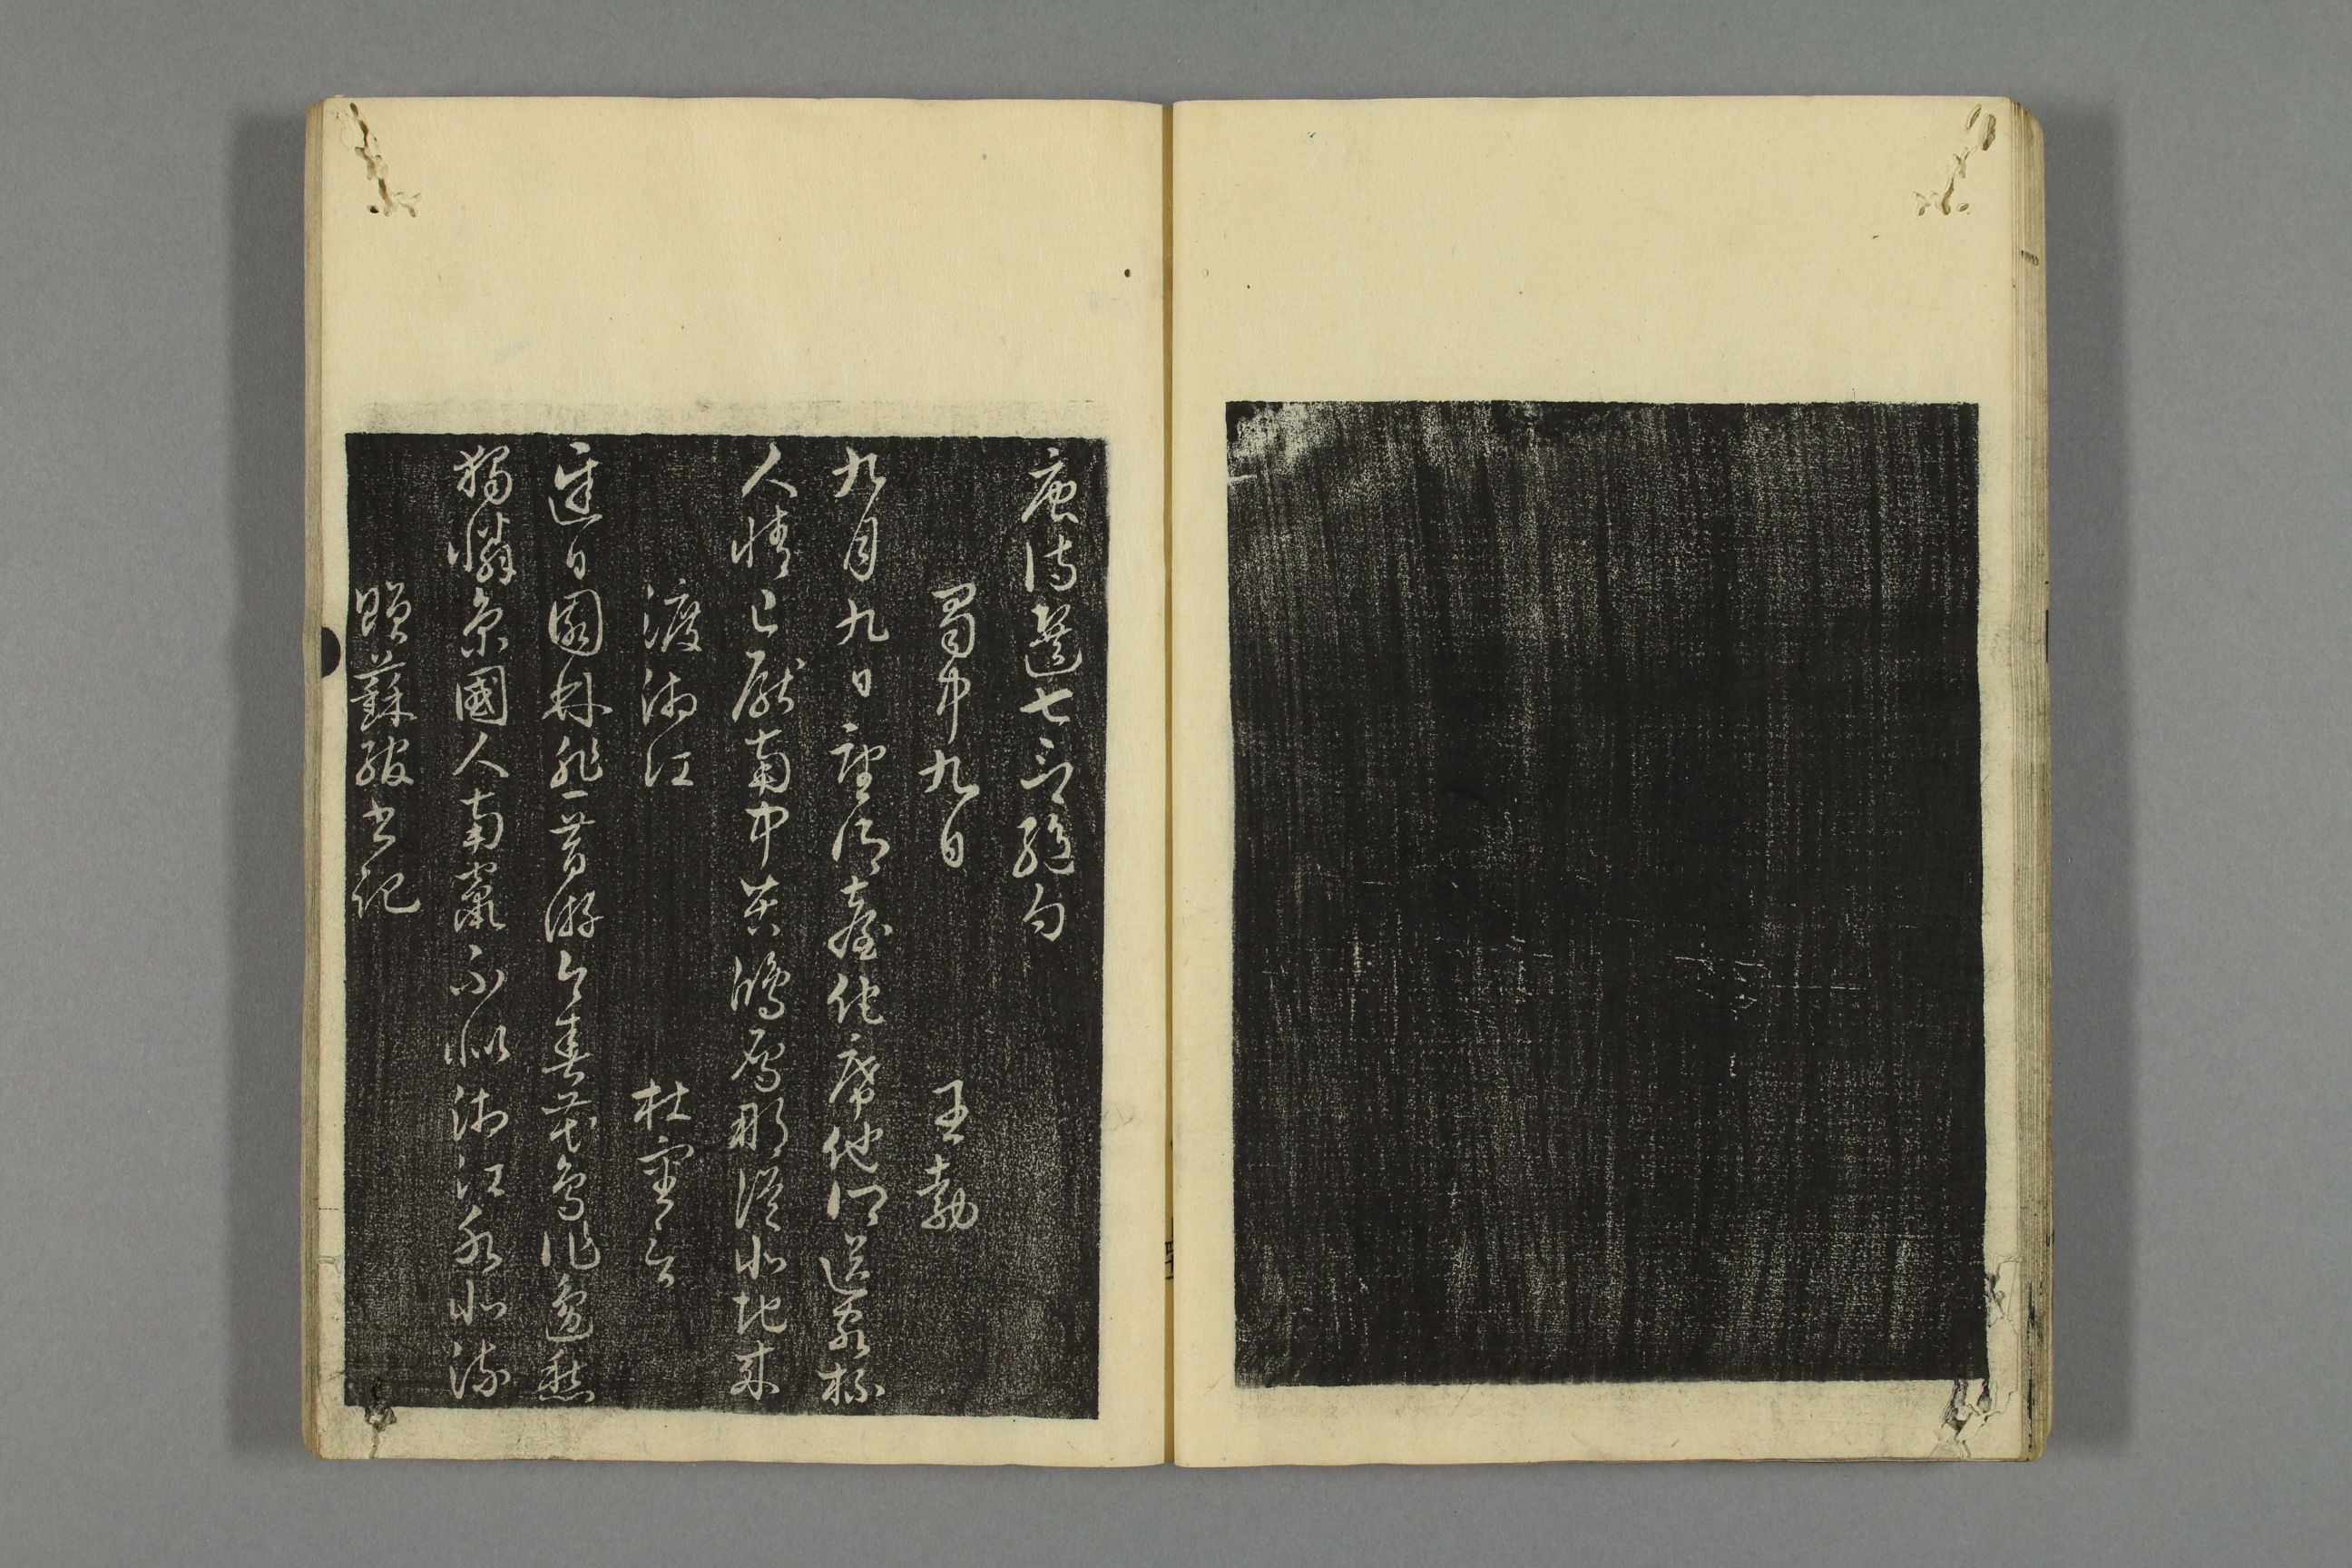 唐詩選七言絶句
蜀中九日 王勃
九月九日望郷臺他席他郷送客杯
人情已厭南中苦鴻雁那従北地来
渡湘江 杜審言
遅日園林悲昔游今春花鳥作邊愁
獨憐京國人南竄不似湘江水北流
贈蘇綰書記